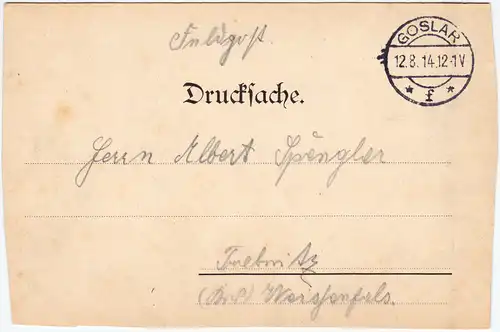 Feldpost.
GOSLAR
12.8.14.12-1V
* f *
Drucksache.
Herrn Albert Spengler
Trebnitz
Weissenfels.